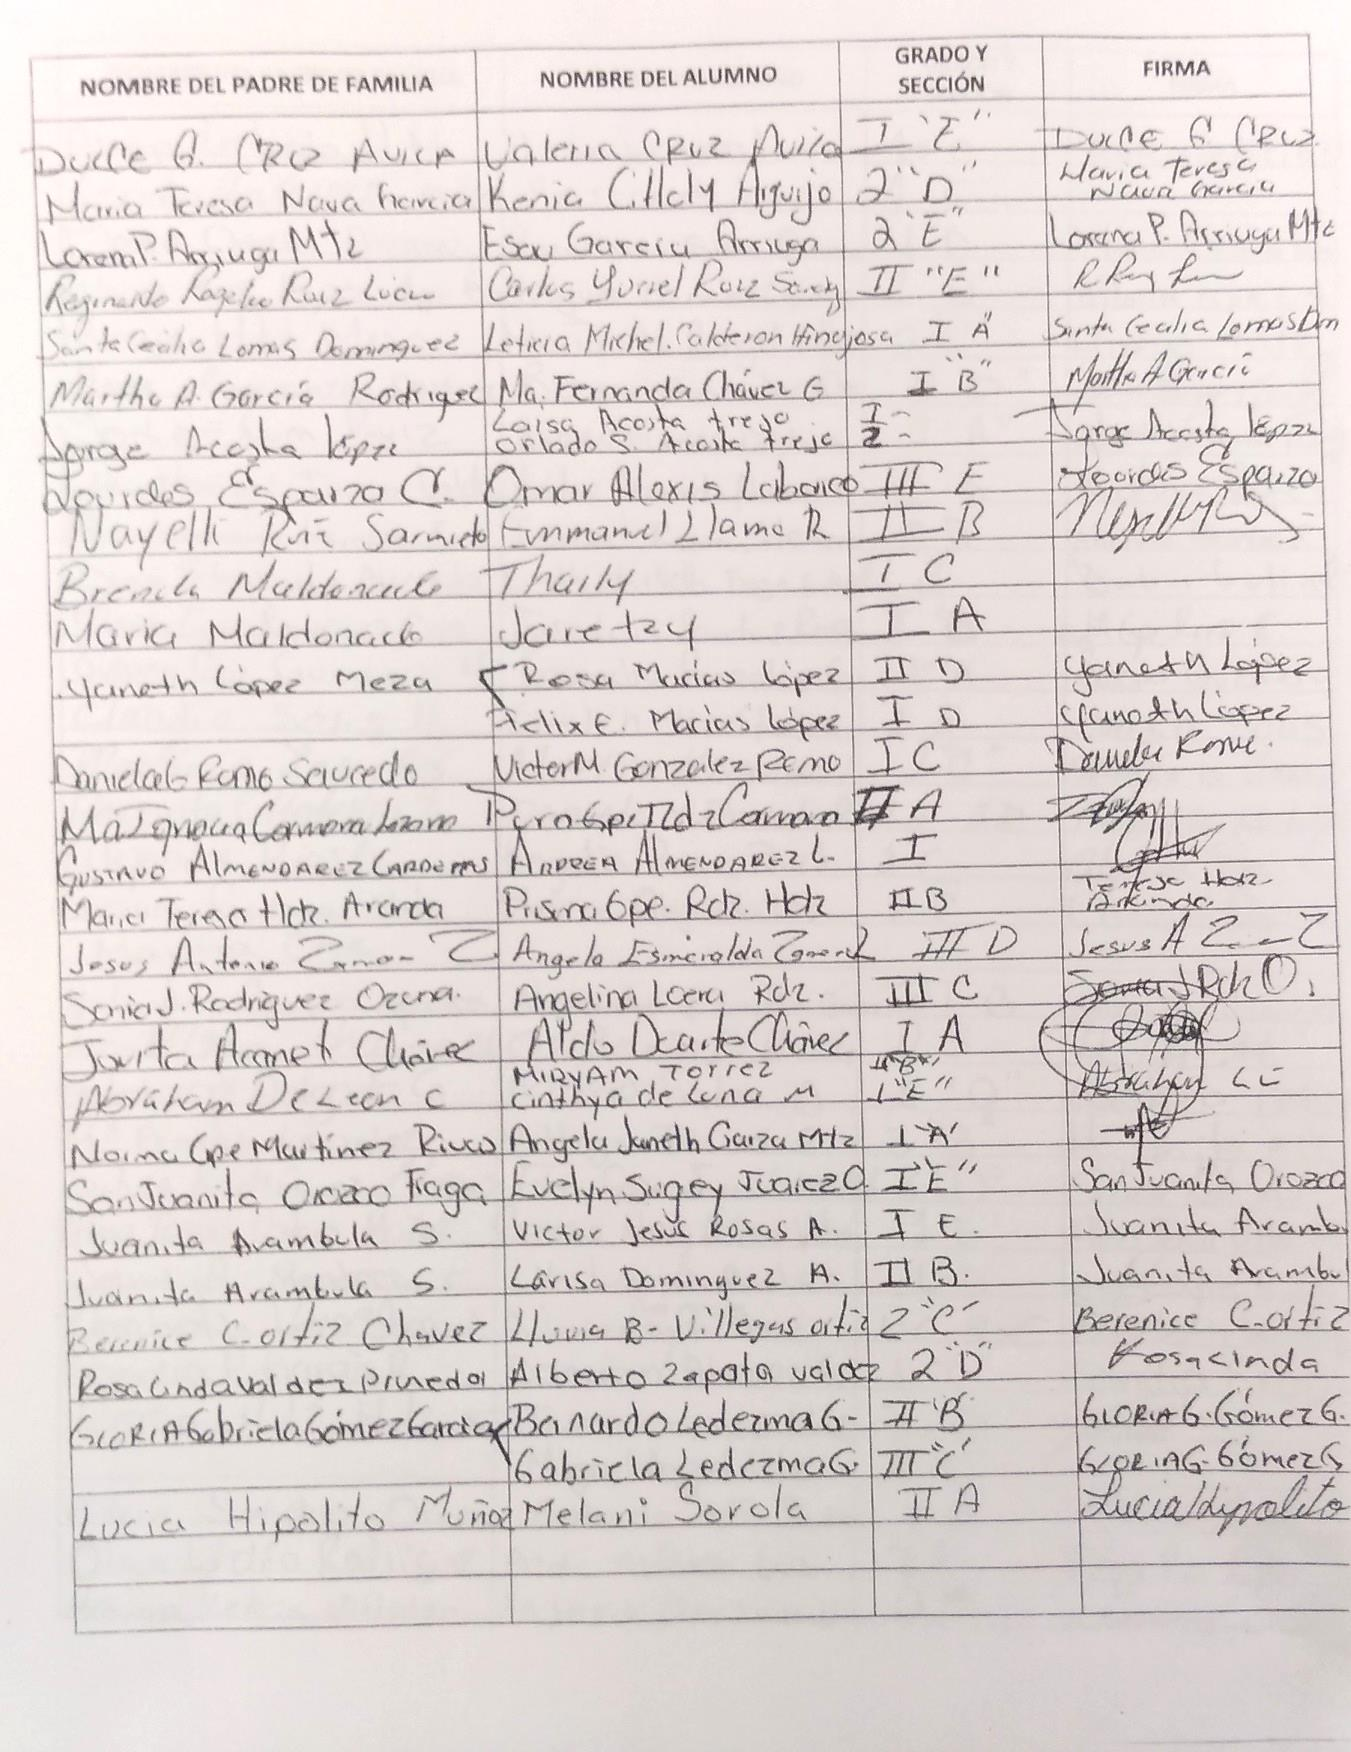 NOMBRE DEL PADRE DE FAMILIA NOMBRE DEL ALUMNO GRADO Y SECCIÓN FIRMA
Dulce G. Cruz Avila Valeria Cruz Avila I "E" Dulce G Cruz
Maria Teresa Nava Garcia Kenia Citlaly Arguijo 2 "D" Maria Teresa Nava Garcia
Lorena P. Arriaga Mtz Esau Garcia Arriaga 2 "E" Lorena P. Arriaga Mtz
Reginaldo Rogelio Ruiz Carlos Yuriel Ruiz II "E"
Santa Cecilia Lomas Dominguez Leticia Michel. Calderon Hinojosa I A" Santa Cecilia Lomas Dom
Martha A. García Rodriguez Ma. Fernanda Chávez G I "B" Martha A García
Jorge Acosta López Laisa Acosta trejo I - Jorge Acosta López
Orlado S. Acosta trejo 2 -
Lourdes Esparza C. Omar Alexis III E Lourdes Esparza
Nayelli Ruiz Sarmieto Emmanuel Llama R II B
Brenda Maldonado Thaily I C
Maria Maldonado Jaretzy I A
Yaneth López Meza Rosa Macias López II D Yaneth López
Felix E. Macias López I D Yaneth López
Daniela G Romo Saucedo Victor M. Gonzalez Romo I C Daniela Romo.
Ma Ignacia II A
Gustavo Almendarez Cardenas Andrea Almendarez L. I
Maria Teresa Hdz. Aranda Prisma Gpe. Rdz. Hdz II B Teresa Hdz. Aranda
Jesus Antonio Angela Esmeralda III D Jesus A
Sonia J. Rodriguez Ozuna. Angelina Loera Rdz. III C Sonia J Rdz O.
Juvita Chávez Aldo Duarte Chávez I A
Abraham De Leon C Miryam Torrez "B" Abraham
Cinthya de Luna M 1 "E"
Norma Gpe Martinez Angela Janeth Garza Mtz 1 "A"
San Juanita Orozco Fraga Evelyn Sugey Juarez O. I "E" San Juanita Orozco
Juanita Arambula S. Victor Jesús Rosas A. I E. Juanita Arambu
Juanita Arambula S. Larisa Dominguez A. II B. Juanita Arambul
Berenice C. Ortiz Chavez Lluvia B- Villegas Ortiz 2 "C" Berenice C. Ortiz
Rosa Linda Valdez Pineda Alberto Zapata Valdez 2 "D" Rosalinda
Gloria Gabriela Gómez Garcia Bernardo Ledezma G- II "B" Gloria G. Gómez G.
Gabriela Ledezma G. III "C" Gloria G. Gómez G
Lucia Hipolito Muñoz Melani Sorola II A Lucia Hipolito